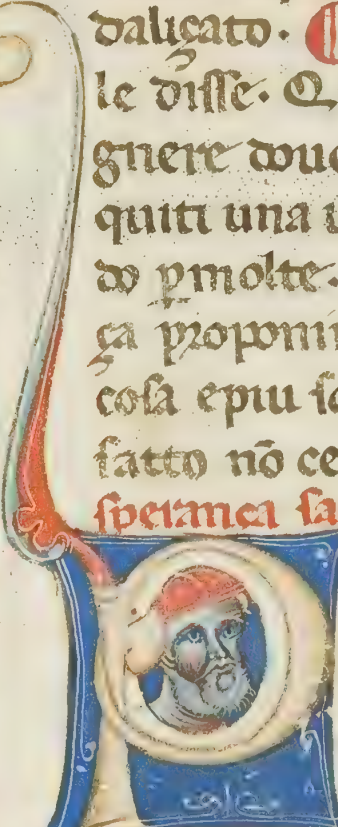 daliçato. ¶
le disse. Q
gnere doue
quiti una u
do ꝑmolte.
ça proponim
cosa epiu so
fatto nō ce
sperança sa